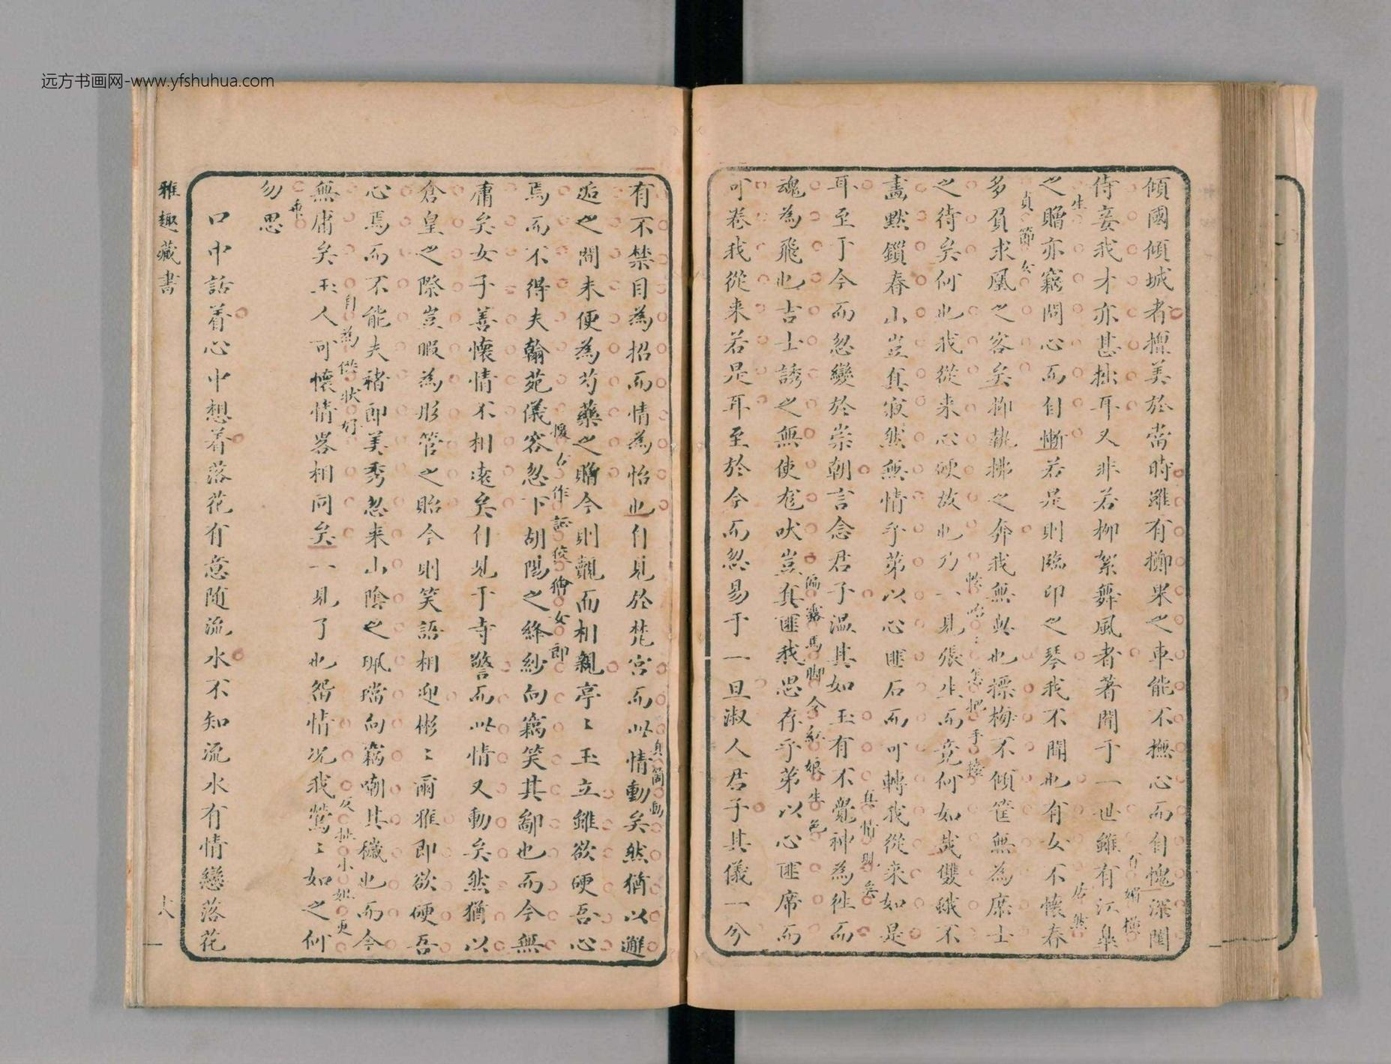 远方书画网-www.yfshuhua.com
傾國傾城者擅美於當時雖有擲果之車能不撫心而自愧深閨
侍妾我才亦甚拙耳又非若柳絮舞風者著聞于一世雖有江皋
之贈亦竊問心而自慚若是則臨卭之琴我不聞也有女不懷春
多負求凰之客矣抑執拂之奔我無與也摽梅不傾筐無為庶士
之待矣何也我從來心硬故也乃一見張生而竟何如哉雙蛾不
畫黙鎖春山豈真寂然無情乎第以心匪石而可轉我從来如是
耳至于今而忽變於崇朝言念君子溫其如玉有不覺神為徃而
魂為飛也吉士誘之無使尨吠豈真匪我思存乎第以心匪席而
可卷我從来若是耳至於今而忽易于一旦淑人君子其儀一兮
有不禁目為招而情為怡也自見於梵宮而此情動矣然猶以邂
逅之間未便為芍藥之贈今則覿面相親亭〻玉立雖欲硬吾心
焉而不得夫翰苑儀容忽下胡陽之絳紗向竊笑其鄙也而今無
庸矣女子善懷情不相遠矣自見于寺警而此情又動矣然猶以
倉皇之際豈暇為彤管之貽今則笑語相迎彬〻爾雅即欲硬吾
心焉而不能夫褚郎美秀忽来山陰之珮璫向竊嘲其穢也而今
無庸矣玉人可懷情畧相同矣一見了也留情况我鶯〻如之何
勿思
口中話着心中想着落花有意随流水不知流水有情戀落花
雅趣藏書
十八
生
貞節女
真情現矣
偏露馬脚今紅娘生色
真箇動
自為供状好